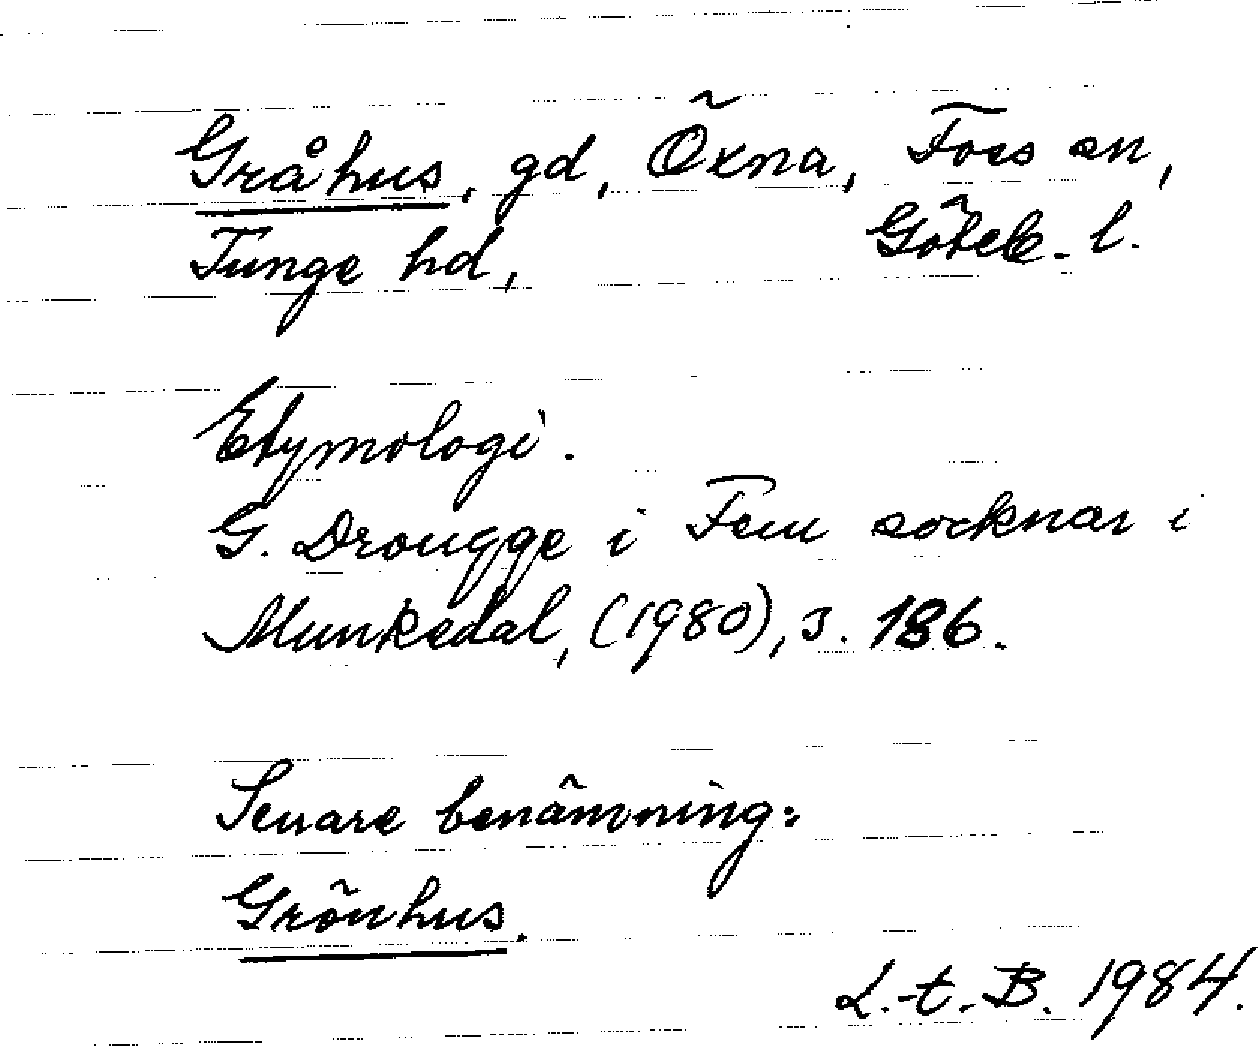 Gråhus, gd, Öxna, Foss sn,
Tunge hd, Göteb. l.
Etymologi.
G. Drougge i Fem socknar i
Munkedal, (1980), s. 186.
Senare benämning:
Grönhus.
L.-t. B. 1984.